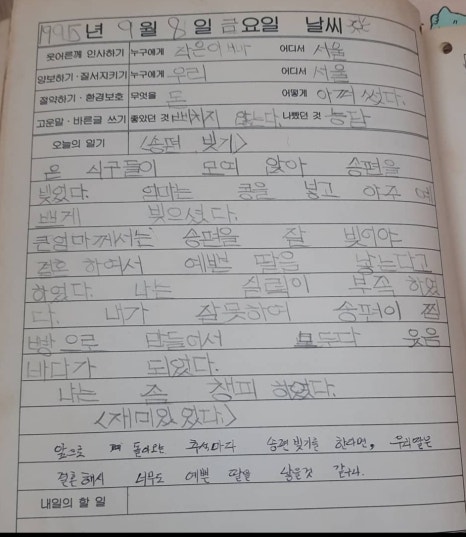 1995년 9월 8일 금요일 날씨
웃어른께 인사하기 누구에게 작은아빠 어디서 서울
양보하기·질서지키기 누구에게 우리 어디서 서울
절약하기·환경보호 무엇을 돈 어떻게 아껴 썼다.
고운말·바른글 쓰기 좋았던 것 나빴던 것 농담
오늘의 일기 <송편 빚기>
온 식구들이 모여 앉아 송편을
빚었다. 엄마는 콩을 넣고 아주 예
쁘게 빚으셨다.
큰엄마께서는 송편을 잘 빚어야
결혼 하여서 예쁜 딸을 낳는다고
하였다. 나는 실력이 부족 하였
다. 내가 잘못하여 송편이 찐
빵으로 만들어서 모두다 웃음
바다가 되었다.
나는 좀 챙피 하였다.
<재미있었다.>
앞으로 돌아오는 추석마다 송편 빚기를 한다면, 우리딸은
결혼해서 너무도 예쁜 딸을 낳을것 같구나.
내일의 할 일